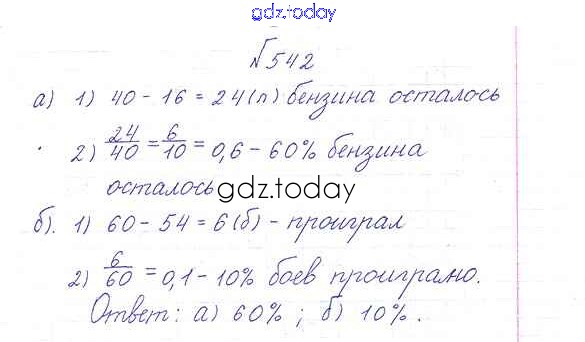 gdz.today
№542
а) 1) 40 - 16 = 24 (л) бензина осталось
2) 24/40 = 6/10 = 0,6 - 60% бензина
осталось gdz.today
б). 1) 60 - 54 = 6 (б) - проиграл
2) 6/60 = 0,1 - 10% боев проиграно.
Ответ: а) 60% ; б) 10% .